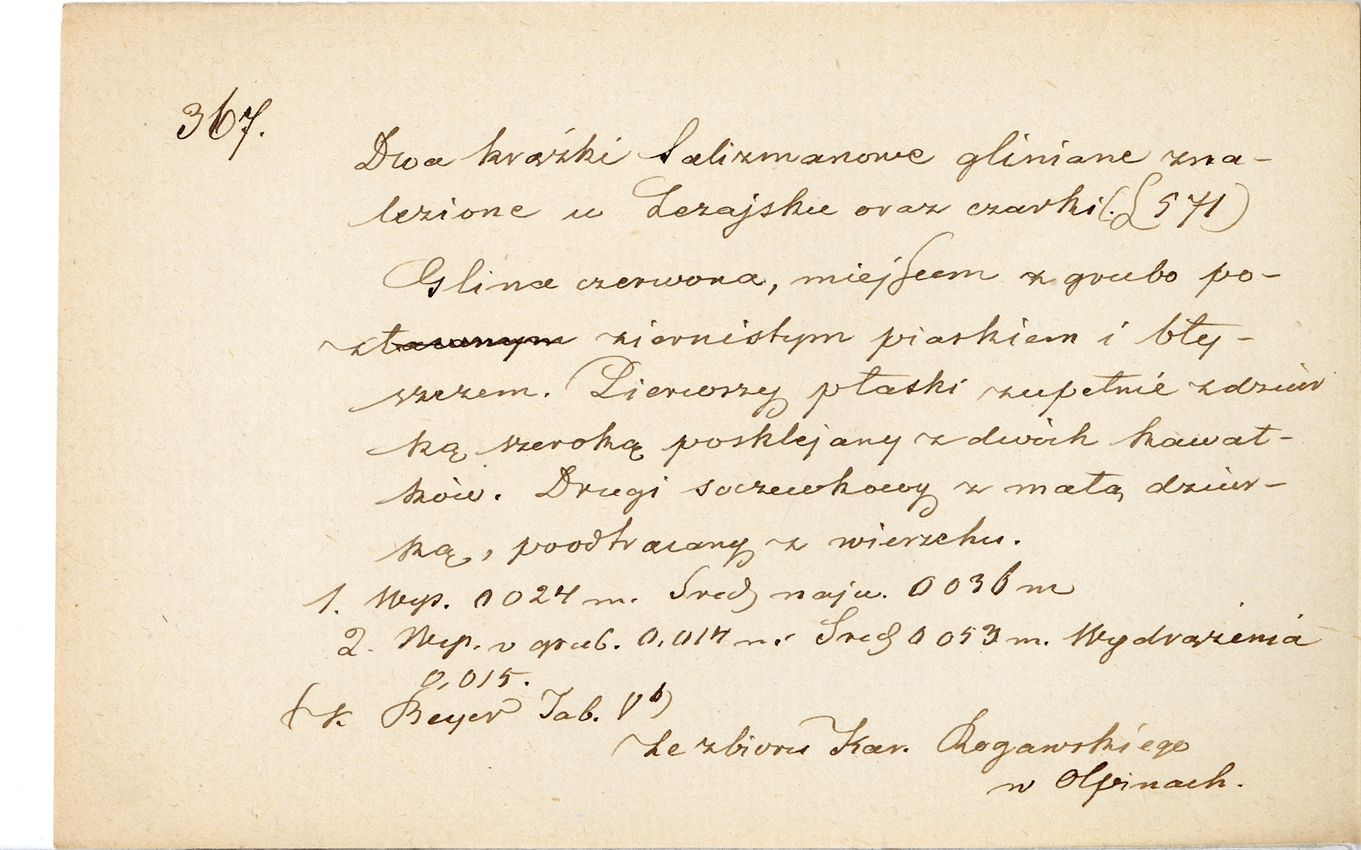 367.
Dwa krążki talizmanowe gliniane zna-
lezione w Leżajsku oraz czarki (. 571)
Glina czerwona, miejscem z grubo po-
ziarnistym piaskiem i błę-
szczem. Pierwszy płaski zupełnie z dziur
ką szeroką posklejany z dwóch kawał-
ków. Drugi soczewkowy z małą dziur-
ką, poodtrącany z wierzchu.
1. Wys. 0 024 m. Sred najw. 0 036 m
2. Wys. v grub. 0,017 m. Sred 0 053 m. Wydrążenia
0,015.
(k. Beyer Tab. V b)
Ze zbioru Kar. Rogawskiego
w Ołpinach.